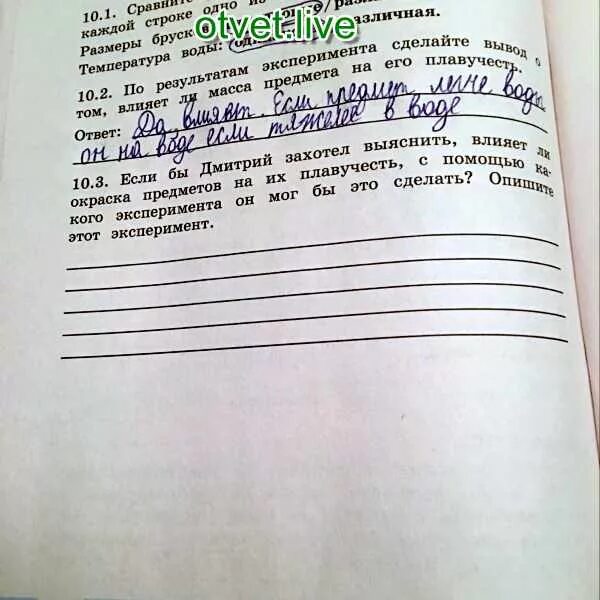 10.1. Сравните
каждой строке одно из
otvet.live
Размеры бруск
Температура воды: различная.
10.2. По результатам эксперимента сделайте вывод о
том, влияет ли масса предмета на его плавучесть.
Ответ: Да, влияет. Если предмет легче воды
он на воде если тяжелей в воде
10.3. Если бы Дмитрий захотел выяснить, влияет ли
окраска предметов на их плавучесть, с помощью ка-
кого эксперимента он мог бы это сделать? Опишите
этот эксперимент.